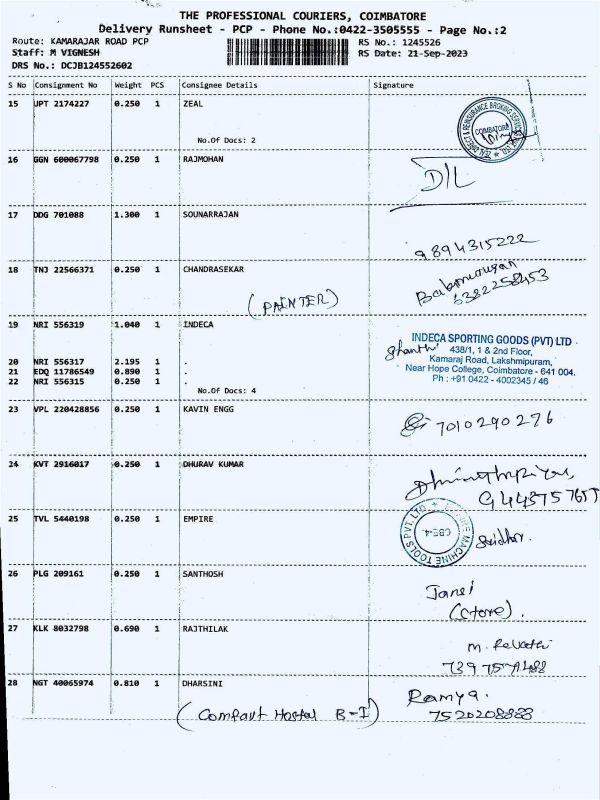 THE PROFESSIONAL COURIERS, COIMBATORE
Delivery Runsheet - PCP - Phone No.:0422-3505555 - Page No.:2
Route: KAMARAJAR ROAD PCP RS No.: 1245526
Staff: M VIGNESH RS Date: 21-Sep-2023
DRS No.: DCJB124552602
S No Consignment No Weight PCS Consignee Details Signature
15 JPT 2174227 0.250 1 ZEAL
COIMBATORE
No.Of Docs: 2
16 GGN 600067798 0.250 1 RAJMOHAN
D/L
17 DDG 701088 1.300 1 SOUNARRAJAN
9894315222
18 TNJ 22566371 0.250 1 CHANDRASEKAR
Babmurugan
(PAINTER) 6382258453
19 NRI 556319 1.040 1 INDECA
INDECA SPORTING GOODS (PVT) LTD
Shanthi 438/1, 1 & 2nd Floor,
Kamaraj Road, Lakshmipuram,
20 NRI 556317 2.195 1 .
21 EDQ 11786549 0.890 1 .
Near Hope College, Coimbatore - 641 004.
22 NRI 556315 0.250 1 .
Ph : +91 0422 - 4002345 / 46
No.Of Docs: 4
23 VPL 220428856 0.250 1 KAVIN ENGG
7010290276
24 KVT 2916017 0.250 1 DHURAV KUMAR
25 TVL 5440198 0.250 1 EMPIRE
EMPIRE MACHINE TOOLS PVT. LTD
CBE-4
Sridhar.
26 PLG 209161 0.250 1 SANTHOSH
Janei
(Store).
27 KLK 8032798 0.690 1 RAJTHILAK
M. Revathi
28 NGT 40065974 0.810 1 DHARSINI
Ramya.
(Compart Hostel B-I) 7520208888